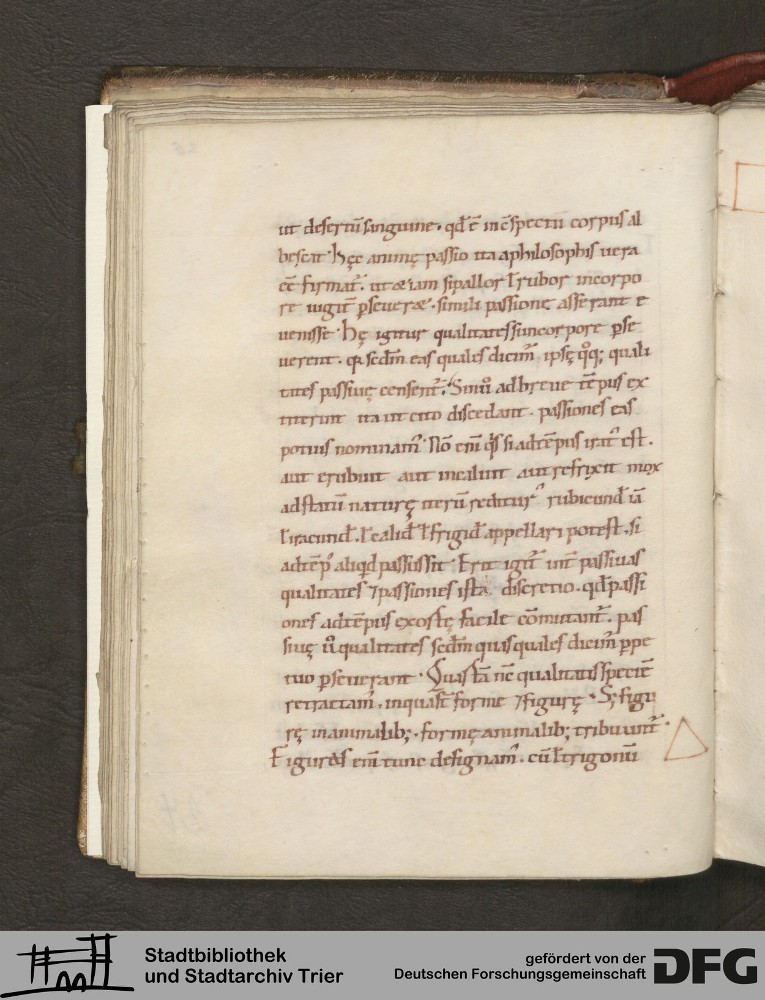 ut desertū sanguine · qđ ē in c̄spectu corpus al
bescat · hęc animę passio ita aphilosophis uera
eē firmat᷑ · ut & iam si pallor ł rubor incorpo
re iugit᷑ ꝑseueræ · simili passione asserant e
uenisse · hę igitur qualitates si incorpore ꝑse
uerent · qꝛ scdm̄ eas quales dicim᷒ ipsę qꝫ quali
tates passiuę censent᷑ · Sin ů adbreue tēpus ex
titerint ita ut cito discedant · passiones eas
potius nominam᷒ · Nō eni qͥs si adtēpus irat᷒ est ·
aut erubuit aut incaluit aut refrixit mox
adstatū naturę iterū reditur᷒ rubicund᷒ iā
ł iracund᷒ · ł calid᷒ ł frigid᷒ appellari potest · si
adtēp᷒ aliqͥd passus sit · Erit igit᷑ int᷑ passiuas
qualitates ⁊ passiones ista discretio · qđ passi
ones adtēpus exortę facile cōmutant᷑ · pas
siuę ů qualitates scdm̄ quas quales dicim᷒ ꝑpe
tuo ꝑseuerant · Quartā nc̄ qualitatis speciē
retractam᷒ · inqua st̄ forme ⁊ figurę · S; figu
rę inanimalib; · formę animalib; tribuunt᷑ ·
Figuras eni tunc designam᷒ · cū ł trigonum
Stadtbibliothek
und Stadtarchiv Trier
gefördert von der
Deutschen Forschungsgemeinschaft
DFG